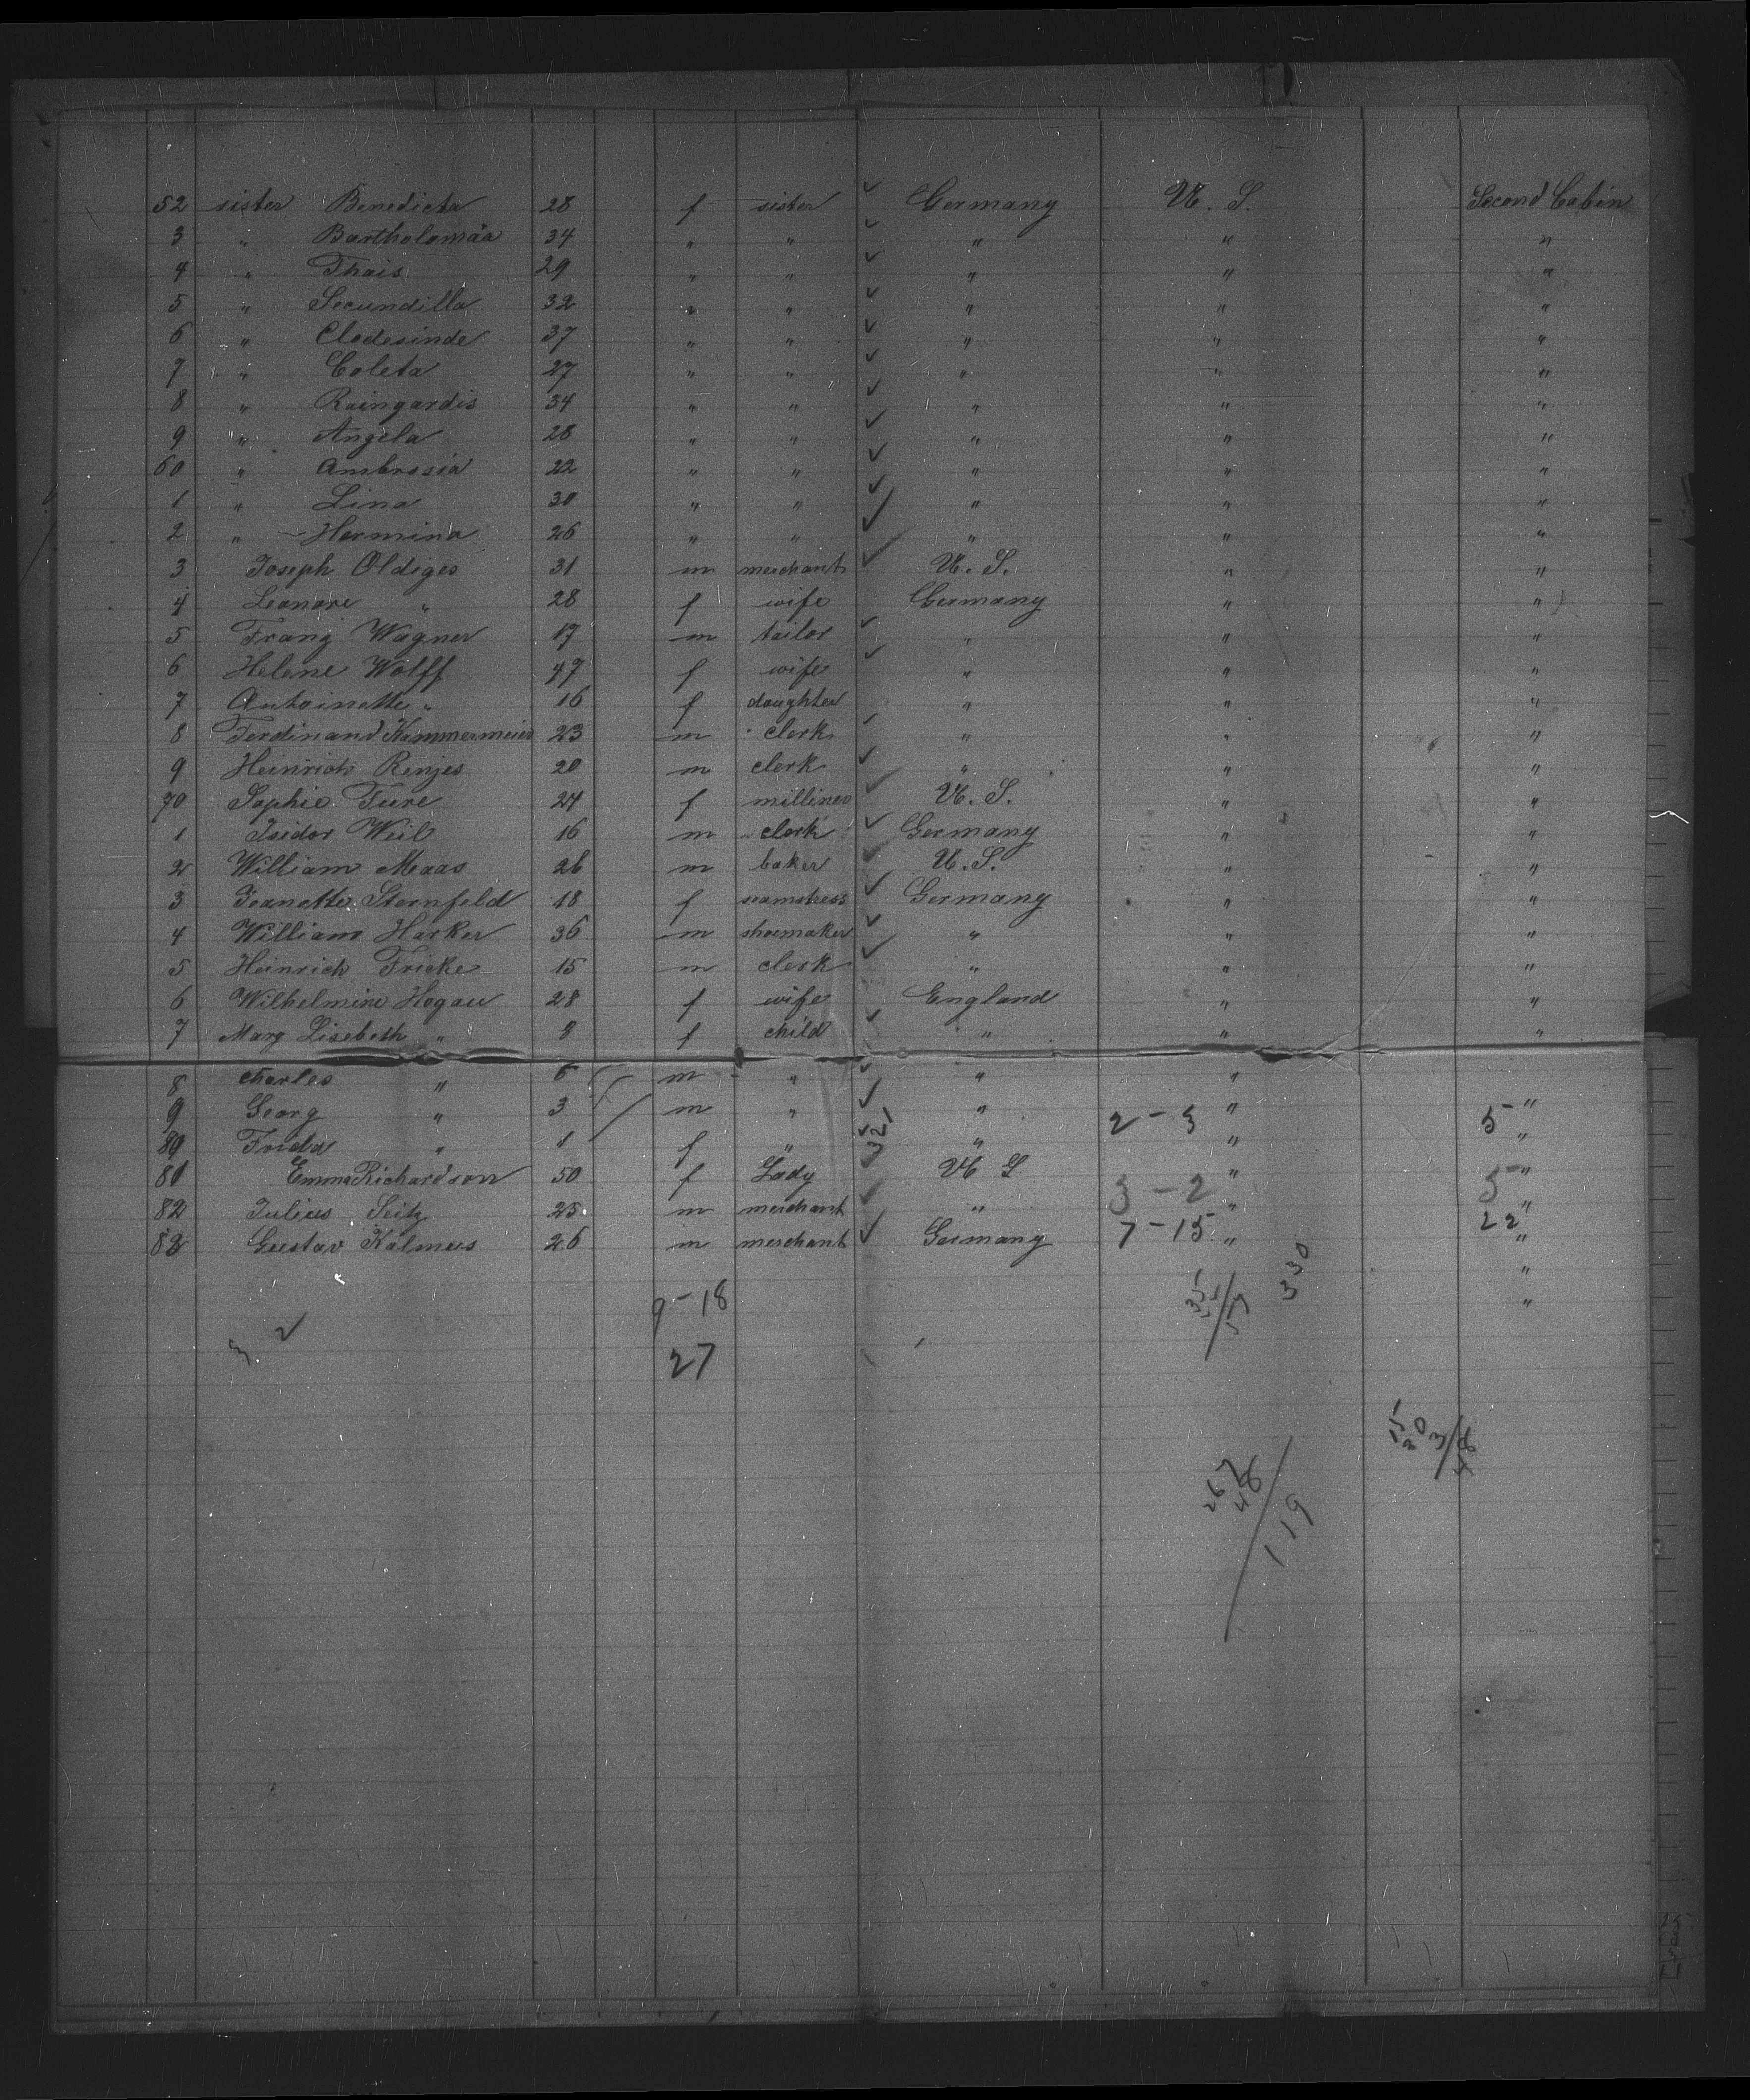 52 sister Benedicta 28 f sister ✓ Germany U. S. Second Cabin
3 " Bartholomäa 34 " " ✓ " " "
4 " Thais 29 " " ✓ " " "
5 " Secundilla 32 " " ✓ " " "
6 " Clodesinde 37 " " ✓ " " "
7 " Coleta 27 " " ✓ " " "
8 " Raingardis 34 " " ✓ " " "
9 " Angela 28 " " ✓ " " "
60 " Ambrosia 22 " " ✓ " " "
1 " Lina 30 " " ✓ " " "
2 " Hermina 26 " " ✓ " " "
3 Joseph Oldiges 31 m merchant ✓ U. S. " "
4 Leonore " 28 f wife Germany " "
5 Franz Wagner 17 m tailor ✓ " " "
6 Helene Wolff 47 f wife ✓ " " "
7 Antoinette " 16 f daughter " " "
8 Ferdinand Kammermeier 23 m clerk ✓ " " "
9 Heinrich Renjes 20 m clerk ✓ " " "
70 Sophie Ture 24 f milliner ✓ U. S. " "
1 Isidor Weil 16 m clerk ✓ Germany " "
2 William Maas 26 m baker ✓ U. S. " "
3 Jeanette Sternfeld 18 f seamstress ✓ Germany " "
4 William Harker 36 m shoemaker ✓ " " "
5 Heinrich Fricke 15 m clerk ✓ " " "
6 Wilhelmine Hogau 28 f wife England " "
7 Marg Lisebeth " 8 f child ✓ " " "
8 Charles " 6 m " ✓ " "
9 Georg " 3 m " ✓ " " "
80 Frida " 1 f " ✓ 321 " 2 - 3 " 5 "
81 Emma Richardson 50 f Lady ✓ U S " "
82 Julius Seitz 25 m merchant ✓ " 3 - 2 " 5 "
83 Gustav Kalmus 26 m merchant ✓ Germany 7 - 15 " 22 "
"
9 - 18 330 "
2 ✓
27
267
48
119
15
30
3
48